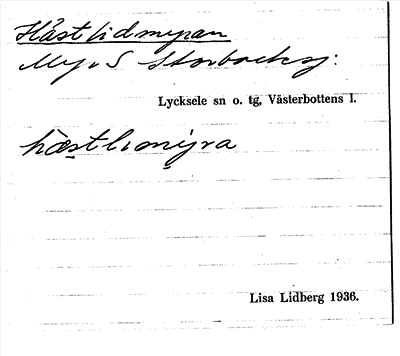 Hästlidmyran
Myr S Storbocksj:
Lycksele sn o. tg, Västerbottens l.
hæstlıomyra
Lisa Lidberg 1936.